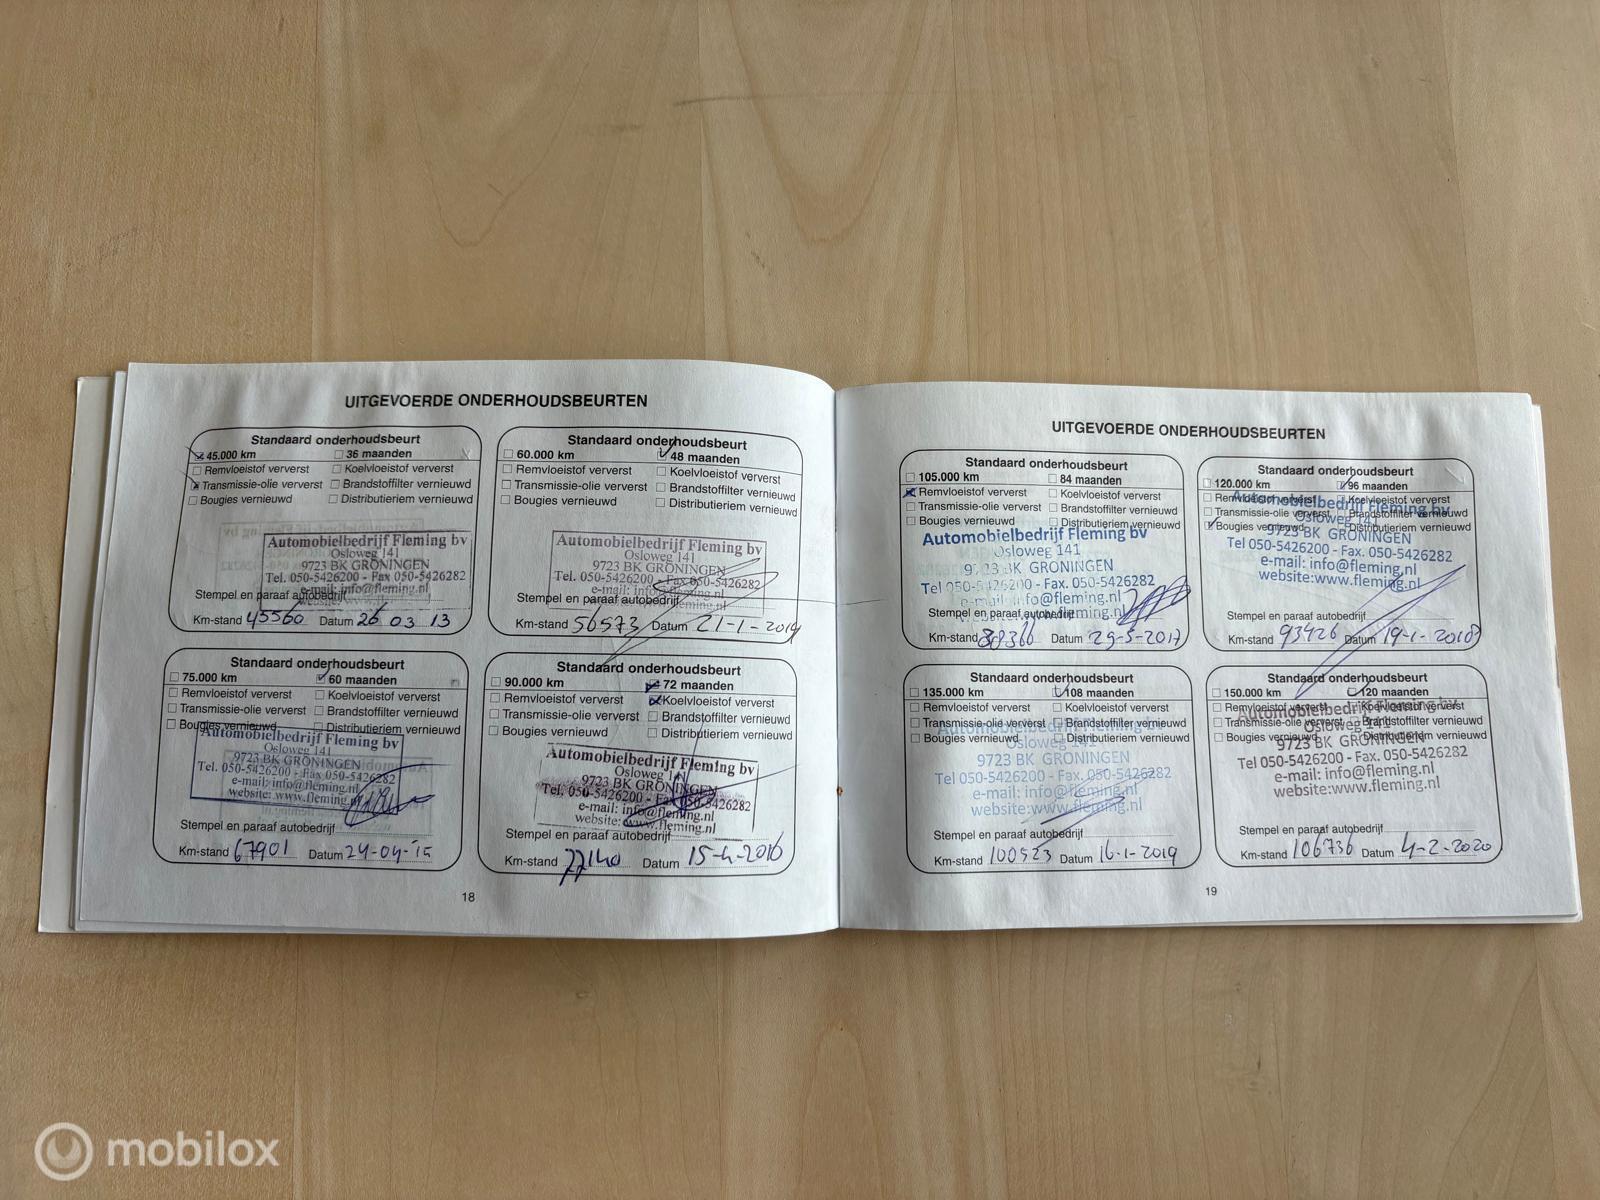 UITGEVOERDE ONDERHOUDSBEURTEN
Standaard onderhoudsbeurt
45.000 km 36 maanden
Remvloeistof ververst Koelvloeistof ververst
Transmissie-olie ververst Brandstoffilter vernieuwd
Bougies vernieuwd Distributieriem vernieuwd
Automobielbedrijf Fleming bv
Osloweg 141
9723 BK GRONINGEN
Tel. 050-5426200 - Fax 050-5426282
e-mail: info@fleming.nl
website:www.fleming.nl
Stempel en paraaf autobedrijf
Km-stand 45560 Datum 26 03 13
Standaard onderhoudsbeurt
60.000 km 48 maanden
Remvloeistof ververst Koelvloeistof ververst
Transmissie-olie ververst Brandstoffilter vernieuwd
Bougies vernieuwd Distributieriem vernieuwd
Automobielbedrijf Fleming bv
Osloweg 141
9723 BK GRONINGEN
Tel. 050-5426200 - Fax 050-5426282
e-mail: info@fleming.nl
Stempel en paraaf autobedrijf
Km-stand 56573 Datum 21-1-2014
Standaard onderhoudsbeurt
75.000 km 60 maanden
Remvloeistof ververst Koelvloeistof ververst
Transmissie-olie ververst Brandstoffilter vernieuwd
Bougies vernieuwd Distributieriem vernieuwd
Automobielbedrijf Fleming bv
Osloweg 141
9723 BK GRONINGEN
Tel. 050-5426200 - Fax 050-5426282
e-mail: info@fleming.nl
website:www.fleming.nl
Stempel en paraaf autobedrijf
Km-stand 67901 Datum 24-04-'15
Standaard onderhoudsbeurt
90.000 km 72 maanden
Remvloeistof ververst Koelvloeistof ververst
Transmissie-olie ververst Brandstoffilter vernieuwd
Bougies vernieuwd Distributieriem vernieuwd
Automobielbedrijf Fleming bv
Osloweg 141
9723 BK GRONINGEN
Tel. 050-5426200 - Fax 050-5426282
e-mail: info@fleming.nl
website:www.fleming.nl
Stempel en paraaf autobedrijf
Km-stand 77140 Datum 15-4-2016
18
UITGEVOERDE ONDERHOUDSBEURTEN
Standaard onderhoudsbeurt
105.000 km 84 maanden
Remvloeistof ververst Koelvloeistof ververst
Transmissie-olie ververst Brandstoffilter vernieuwd
Bougies vernieuwd Distributieriem vernieuwd
Automobielbedrijf Fleming bv
Osloweg 141
9723 BK GRONINGEN
Tel 050-5426200 - Fax. 050-5426282
e-mail: info@fleming.nl
website:www.fleming.nl
Stempel en paraaf autobedrijf
Km-stand 88366 Datum 29-5-2017
Standaard onderhoudsbeurt
120.000 km 96 maanden
Remvloeistof ververst Koelvloeistof ververst
Transmissie-olie ververst Brandstoffilter vernieuwd
Bougies vernieuwd Distributieriem vernieuwd
Automobielbedrijf Fleming bv
Osloweg 141
9723 BK GRONINGEN
Tel 050-5426200 - Fax. 050-5426282
e-mail: info@fleming.nl
website:www.fleming.nl
Stempel en paraaf autobedrijf
Km-stand 93426 Datum 19-1-2018
Standaard onderhoudsbeurt
135.000 km 108 maanden
Remvloeistof ververst Koelvloeistof ververst
Transmissie-olie ververst Brandstoffilter vernieuwd
Bougies vernieuwd Distributieriem vernieuwd
Automobielbedrijf Fleming bv
Osloweg 141
9723 BK GRONINGEN
Tel 050-5426200 - Fax. 050-5426282
e-mail: info@fleming.nl
website:www.fleming.nl
Stempel en paraaf autobedrijf
Km-stand 100523 Datum 16-1-2019
Standaard onderhoudsbeurt
150.000 km 120 maanden
Remvloeistof ververst Koelvloeistof ververst
Transmissie-olie ververst Brandstoffilter vernieuwd
Bougies vernieuwd Distributieriem vernieuwd
Automobielbedrijf Fleming bv
Osloweg 141
9723 BK GRONINGEN
Tel 050-5426200 - Fax. 050-5426282
e-mail: info@fleming.nl
website:www.fleming.nl
Stempel en paraaf autobedrijf
Km-stand 106736 Datum 4-2-2020
19
mobilox